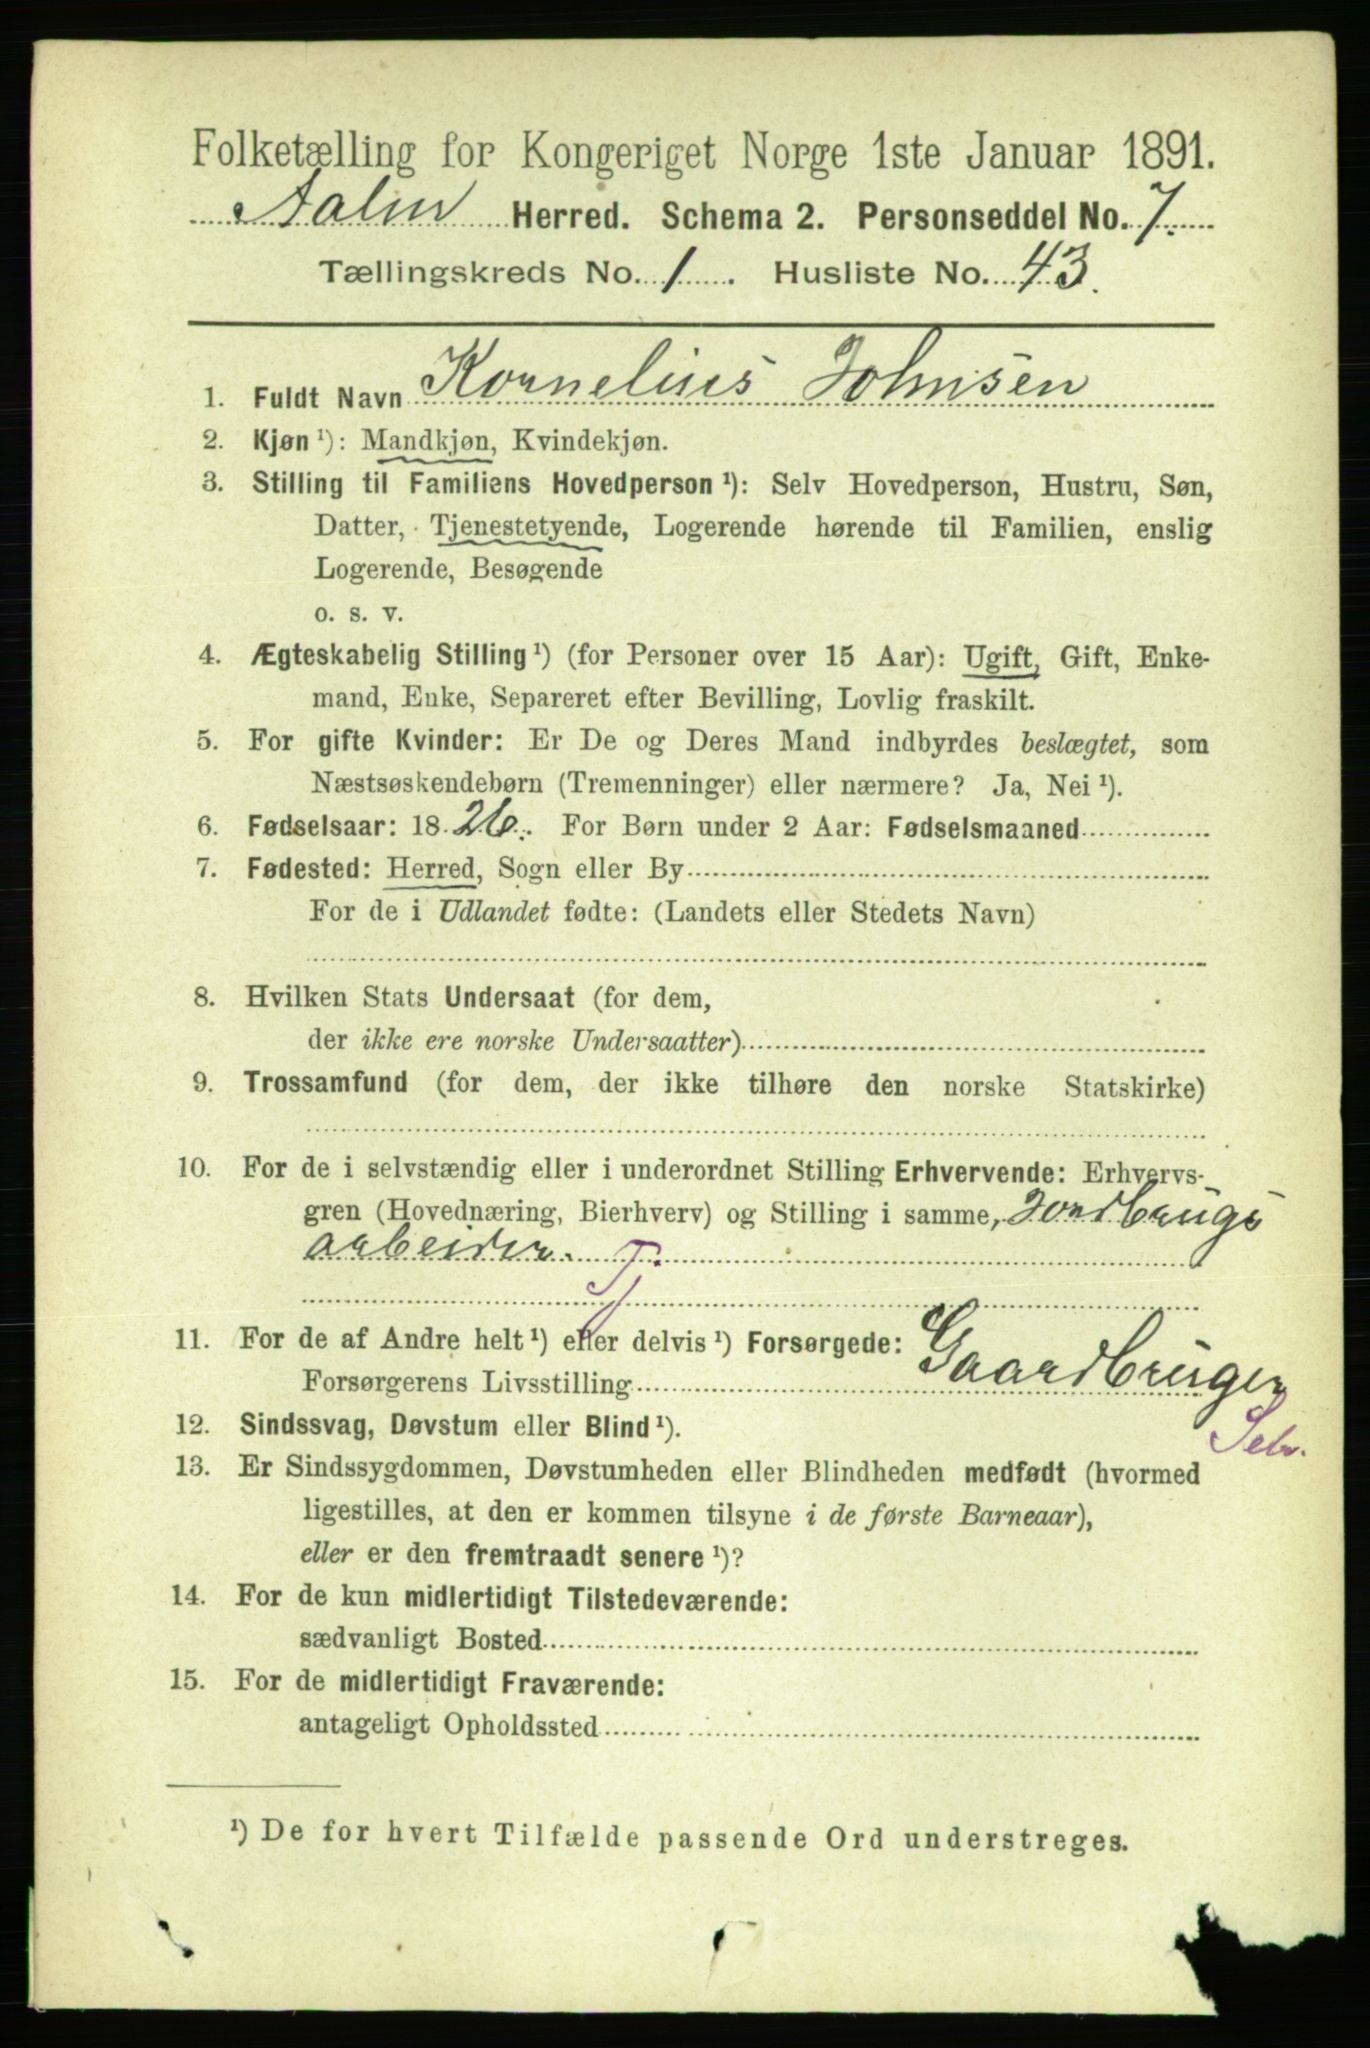 Folketælling for Kongeriget Norge 1ste Januar 1891.
Herred. Schema 2. Personseddel No. 7.
Tællingskreds No. 1. Husliste No. 43.
1. Fuldt Navn Kornelius Johnsen
2. Kjøn ¹): Mandkjøn, Kvindekjøn.
3. Stilling til Familiens Hovedperson ¹): Selv Hovedperson, Hustru, Søn,
Datter, Tjenestetyende, Logerende hørende til Familien, enslig
Logerende, Besøgende
o. s. v.
4. Ægteskabelig Stilling ¹) (for Personer over 15 Aar): Ugift, Gift, Enke-
mand, Enke, Separeret efter Bevilling, Lovlig fraskilt.
5. For gifte Kvinder: Er De og Deres Mand indbyrdes beslægtet, som
Næstsøskendebørn (Tremenninger) eller nærmere? Ja, Nei ¹).
6. Fødselsaar: 1826. For Børn under 2 Aar: Fødselsmaaned
7. Fødested: Herred, Sogn eller By
For de i Udlandet fødte: (Landets eller Stedets Navn)
8. Hvilken Stats Undersaat (for dem,
der ikke ere norske Undersaatter)
9. Trossamfund (for dem, der ikke tilhøre den norske Statskirke)
10. For de i selvstændig eller i underordnet Stilling Erhvervende: Erhvervs-
gren (Hovednæring, Bierhverv) og Stilling i samme, Jordbrugs
arbeider. T.
11. For de af Andre helt ¹) eller delvis ¹) Forsørgede:
Forsørgerens Livsstilling Gaardbruger
Selv.
12. Sindssvag, Døvstum eller Blind ¹).
13. Er Sindssygdommen, Døvstumheden eller Blindheden medfødt (hvormed
ligestilles, at den er kommen tilsyne i de første Barneaar),
eller er den fremtraadt senere ¹)?
14. For de kun midlertidigt Tilstedeværende:
sædvanligt Bosted
15. For de midlertidigt Fraværende:
antageligt Opholdssted
¹) De for hvert Tilfælde passende Ord understreges.